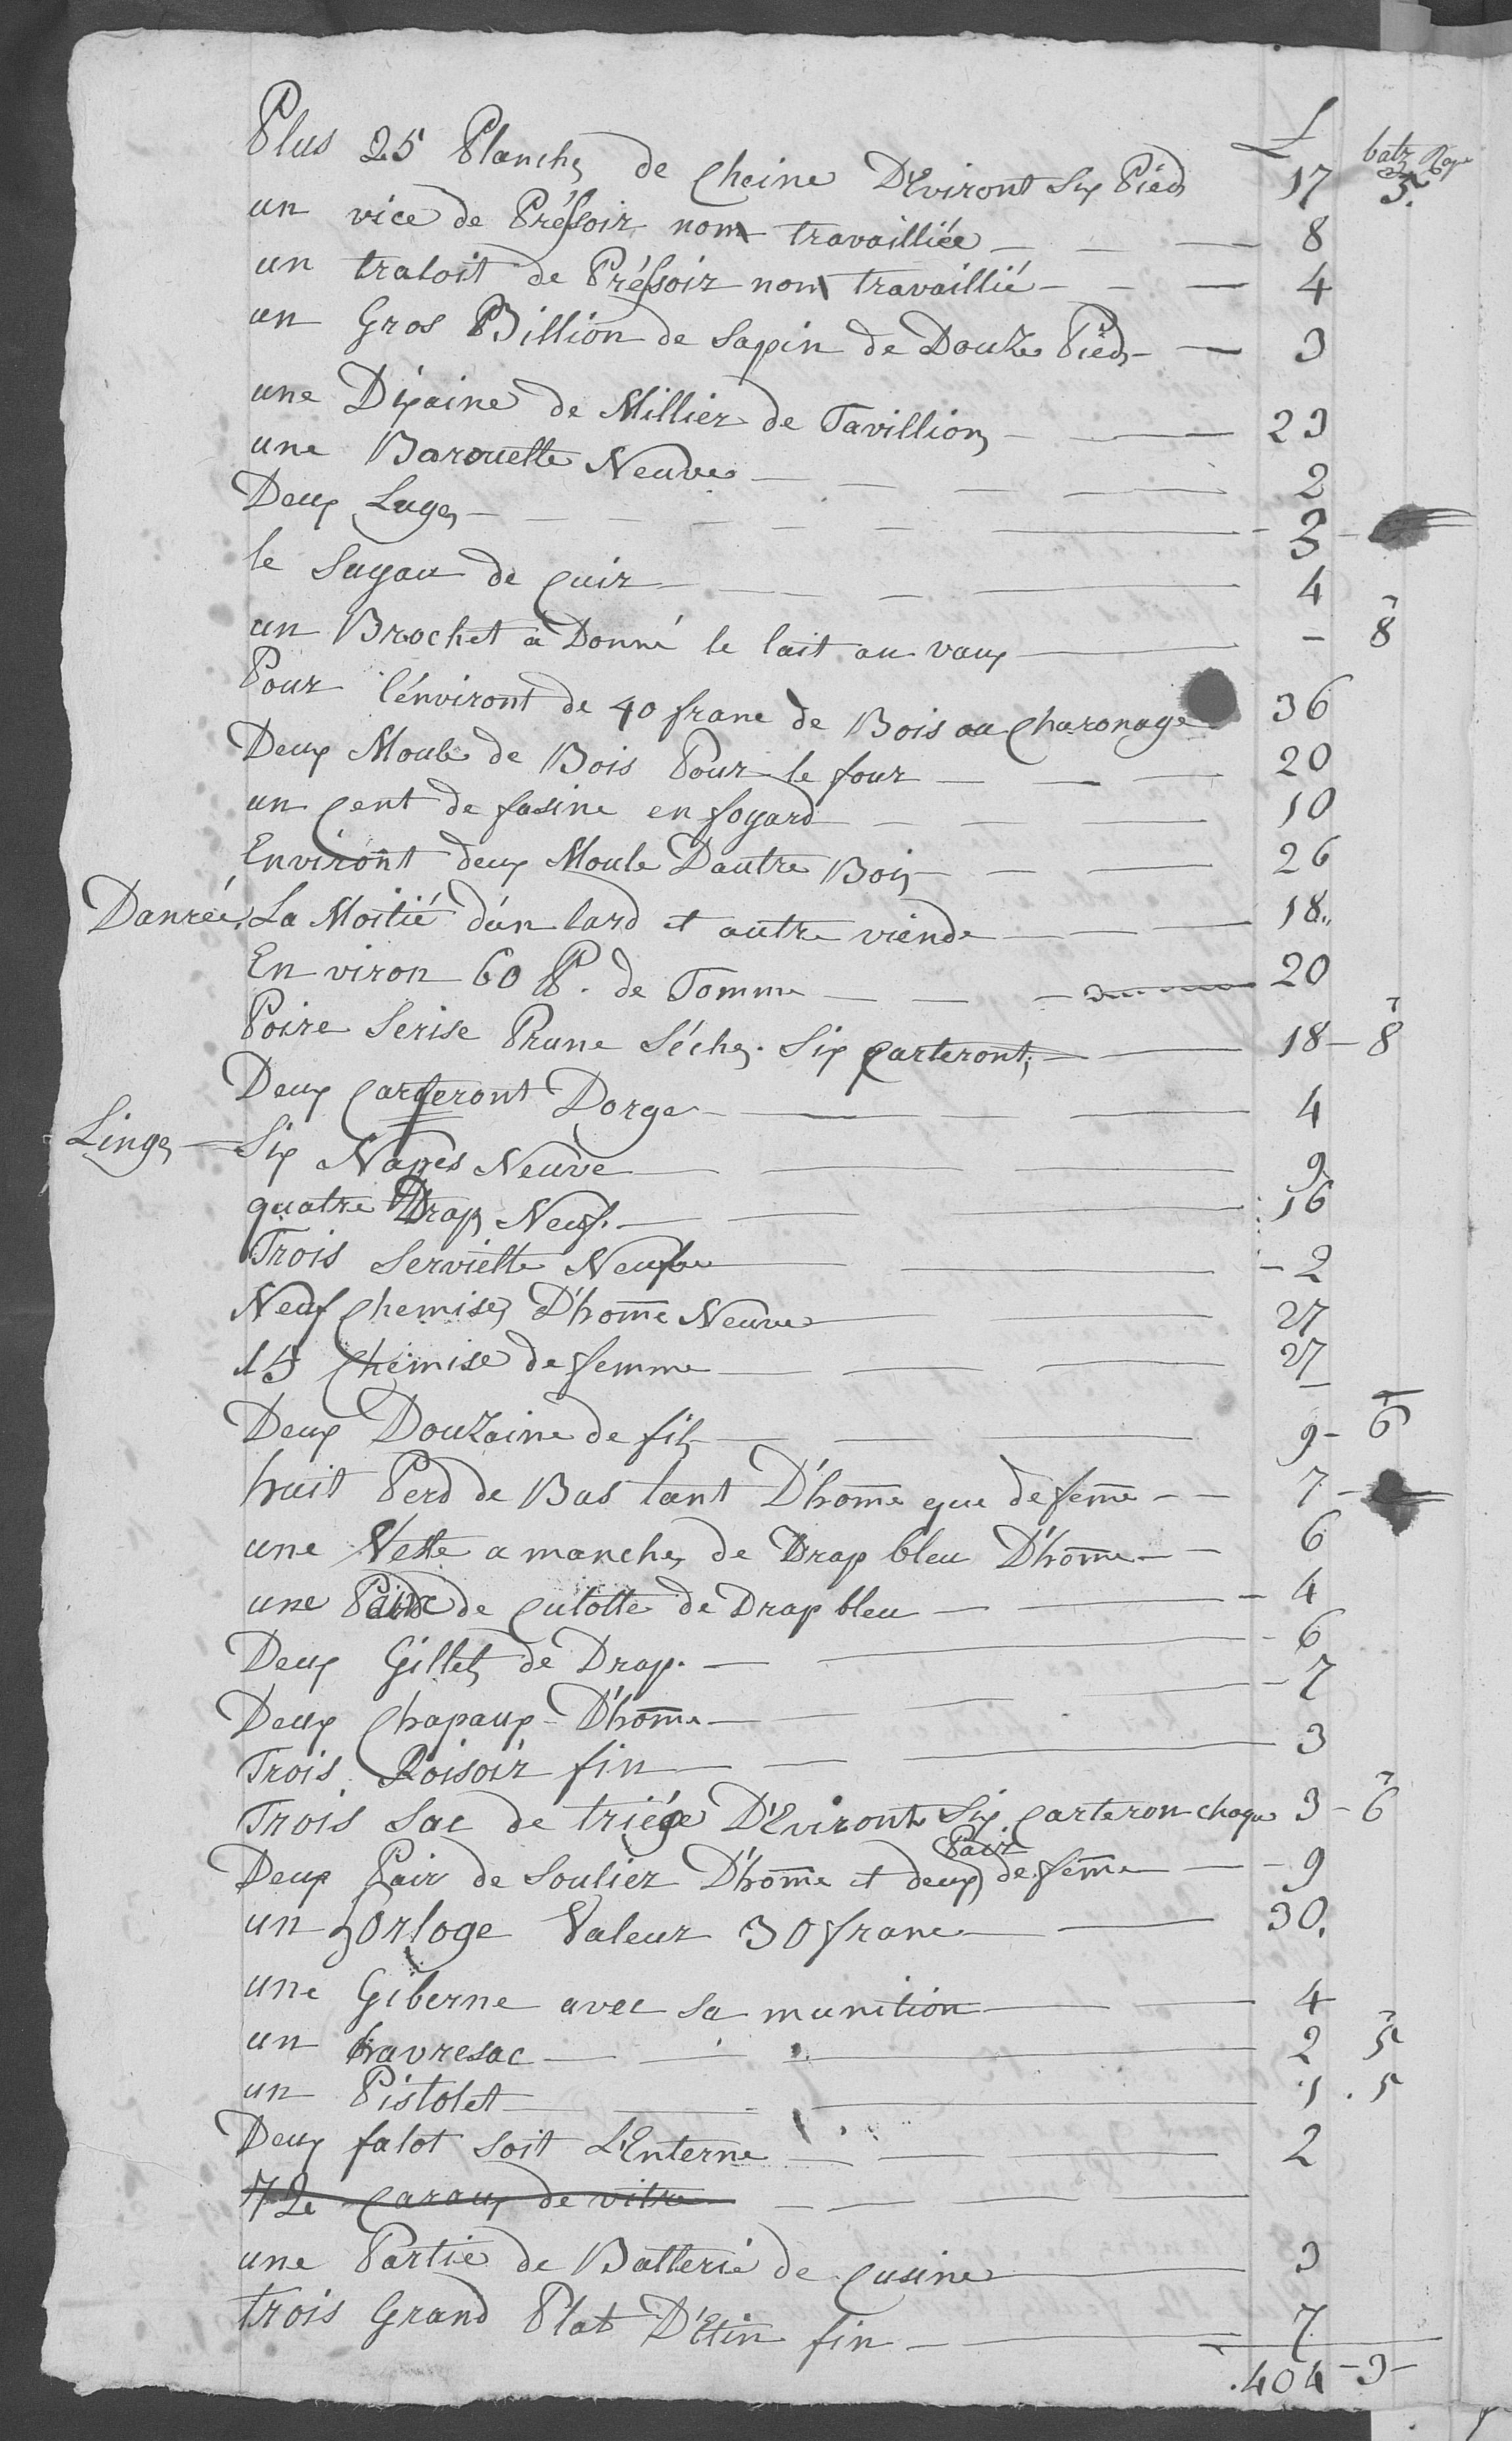 L batz Rap
Plus 25 Planches de Cheine D'Eviront Six Pieds 17 5.
un vice de Préssoir nom travailliée — 8
un traloit de Préssoir nom travaillié — 4
un Gros Billion de Sapin de Douze Pieds — 3
une Dixaine de Millier de Tavillions — 23
une Barouette Neuve — 2
Deux Luges — 3 —
le Suyau de Cuir — 4
un Brochet a Donné le lait au vaux — 8
Pour l'énviront de 40 franc de Bois au Charonage 36
Deux Moule de Bois Pour le four — 20
un Cent de fasine en foyard — 10
Environt deux Moule Dautre Bois — 26
Danrée. La Moitié d'un lard et autre viende — 18.
En viron 60 P. de Tomme — 20
Poire Serise Prune Séches. Six Carteront; — 18 — 8
Deux Carteront Dorge — 4
Linges — Six Napes Neuve — 9
quatre Drap Neuf. — 16
Trois Serviette Neufve — 2
Neuf Chemises D'home Neuve — 27
15 Chemise de femme — 27
Deux Douzaine de fils — 9 — 6
huit Perd de Bas tant D'home que de feme — 7 —
une Veste a manches de Drap bleu D'home — 6
une Paire de Culotte de Drap bleu — 4
Deux Gillets de Drap. — 6
Deux Chapaux D'home — 7
Trois Roisoir fin — 3
Trois Sac de triége D'Eviront Six Carteron chaque 3 — 6
Deux Pair de Soulier D'home et deux Pair de feme — 9
un horloge Valeur 30 franc — 30.
une Giberne avec sa munition — 4
un havresac — 2 5
un Pistolet — 1 . 5
Deux falot soit L'Enterne — 2
72 Caraux de vitre —
une Partie de Batterie de Cusine — 3
trois Grand Plat D'Etin fin — 7
.404 — 3 —